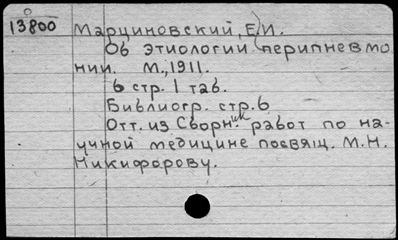 13800 Марциновский, Е.И.
Об этиологии перипневмо
нии. М., 1911.
6 стр. 1 таб.
Библиогр. стр. 6
Отт. из Сборник работ по на-
учной медицине посвящ. М.Н.
Никифорову.